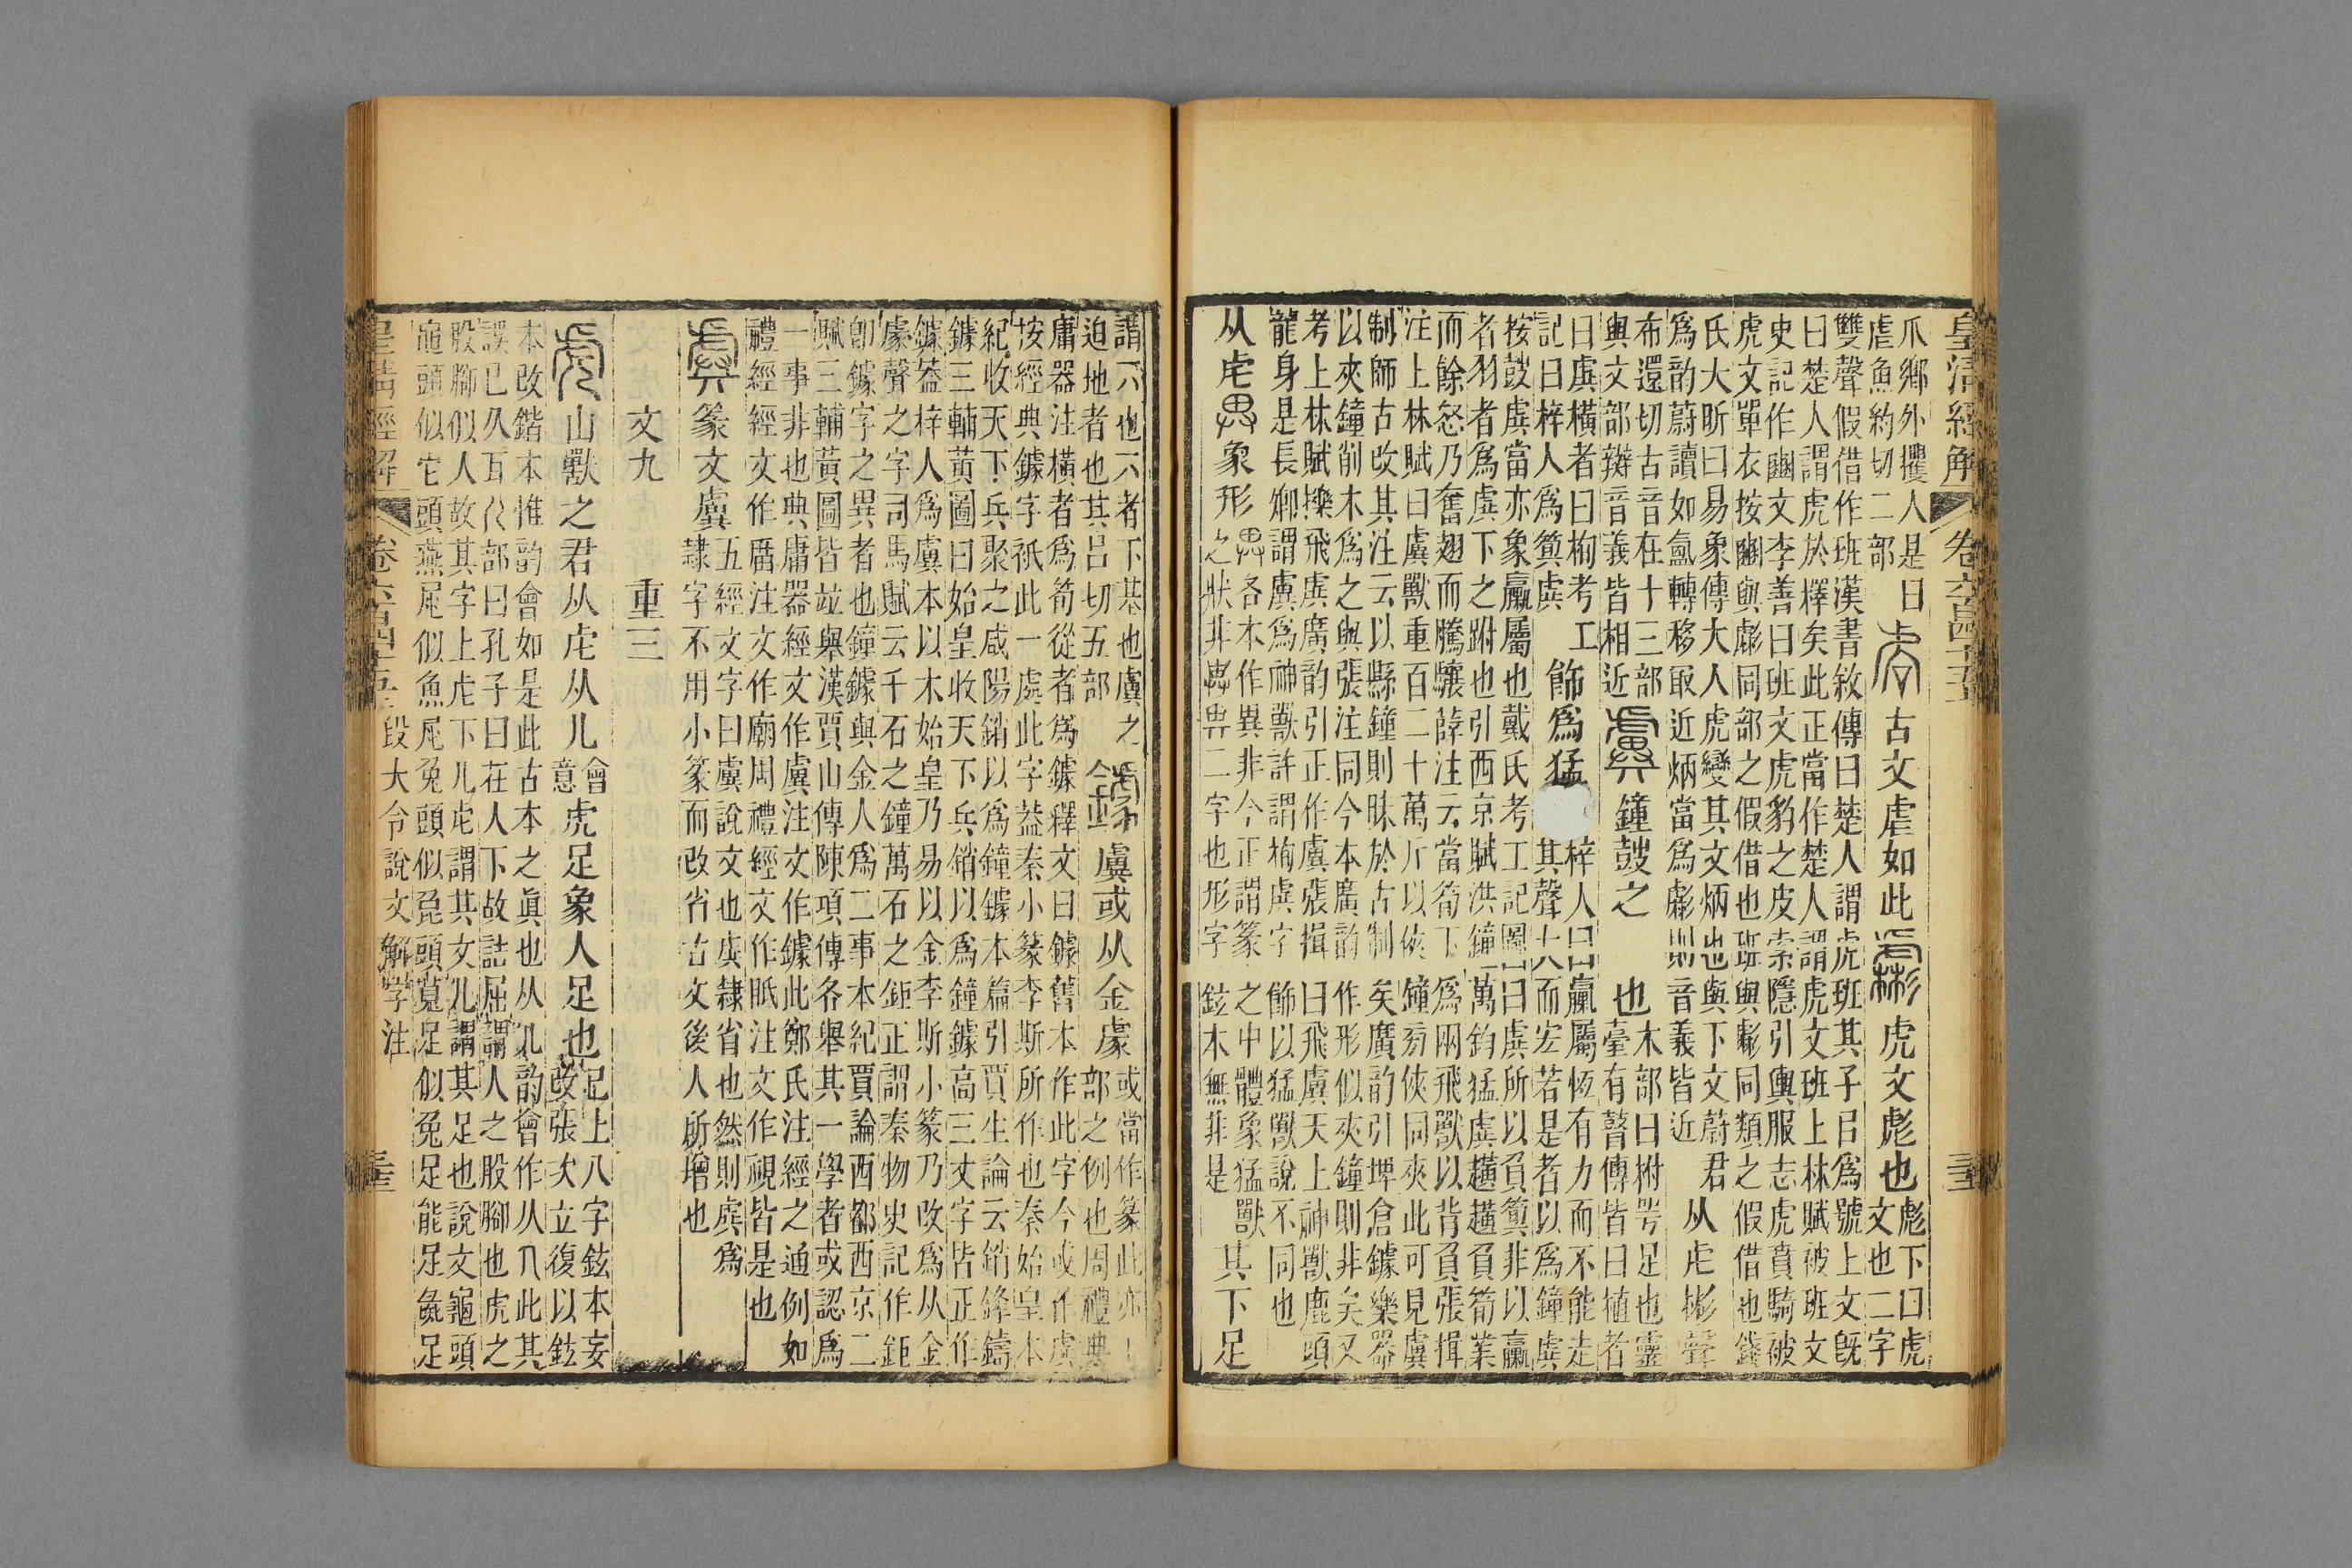 皇清經解 卷六百四十五
爪鄉外攫人是曰
虐魚約切二部
古文虐如此
虎文彪也
彪下曰虎
文也二字
雙聲假借作班漢書敘傳曰楚人謂虎班其子㠯爲號上文旣
曰楚人謂虎於檡矣此正當作楚人謂虎文班上林賦被班文
史記作豳文李善曰班文虎豹之皮索隱引輿服志虎賁騎被
虎文單衣按豳與彪同部之假借也班與彪同類之假借也錢
氏大昕曰易象傳大人虎變其文炳也與下文蔚君
爲韵蔚讀如氳轉移取近炳當爲彪則音義皆近
从虍彬聲
布還切古音在十三部
與文部辬音義皆相近
鐘鼓之
也
木部曰柎咢足也靈
臺有瞽傳皆曰植者
曰虡橫者曰栒考工
記曰梓人爲筍虡
飾爲猛
梓人曰臝屬恆有力而不能走
其聲大而宏若是者以爲鐘虡
按鼓虡當亦象臝屬也戴氏考工記圖曰虡所以負筍非以臝
者羽者爲虡下之跗也引西京賦洪鐘萬鈞猛虡趪趪負筍業
而餘怒乃奮翅而騰驤薛注云當筍下爲兩飛獸以背負張揖
注上林賦曰虡獸重百二十萬斤以俠鐘旁俠同夾此可見虡
制師古改其注云以縣鐘則昧於古制矣廣韵引埤倉鐻樂器
以夾鐘削木爲之與張注同今本廣韵作形似夾鐘則非矣又
考上林賦飛虡廣韵引正作虡張揖曰飛虡天上神獸鹿頭
龍身是長卿謂虡爲神獸許謂栒虡字飾以猛獸說不同也
从虍象形
各本作異非今正謂篆之中體象猛獸
之狀非二字也形字鉉本無非是
其下足
謂六也六者下基也虡之
迫地者也其呂切五部
虡或从金豦
或當作篆此亦上
部之例也周禮典
庸器注橫者爲筍從者爲鐻釋文曰鐻舊本作此字今或作虡
按經典鐻字祇此一處此字葢秦小篆李斯所作也秦始皇本
紀收天下兵聚之咸陽銷以爲鐘鐻本篇引賈生論云銷鋒鑄
鐻三輔黃圖曰始皇收天下兵銷以爲鐘鐻高三丈字皆正作
鐻葢梓人爲虡本以木始皇乃易以金李斯小篆乃改爲从金
豦聲之字司馬賦云千石之鐘萬石之鉅正謂秦物史記作鉅
卽鐻字之異者也鐘鐻與金人爲二事本紀賈論西都西京二
賦三輔黃圖皆竝舉漢賈山傳陳項傳各舉其一學者或認爲
一事非也典庸器經文作虡注文作鐻此鄭氏注經之通例如
禮經經文作厝注文作廟周禮經文作眂注文作視皆是也
篆文虡
五經文字曰虡說文也虡隸省也然則虡爲
隸字不用小篆而改省古文後人所增也
文九 重三
山獸之君从虍从儿
會
意
虎足象人足也
已上八字鉉本妄
改張次立復以鉉
本改鍇本惟韵會如是此古本之眞也从儿韵會作从几此其
誤已久百儿部曰孔子曰在人下故詰屈謂人之股腳也虎之
股腳似人故其字上虍下儿虍謂其文儿謂其足也說文龜頭
黽頭似它頭燕尾似魚尾兔頭似㲋頭莧足似兔足能足彘足
皇清經解 卷六百四十五 段大令說文解字注